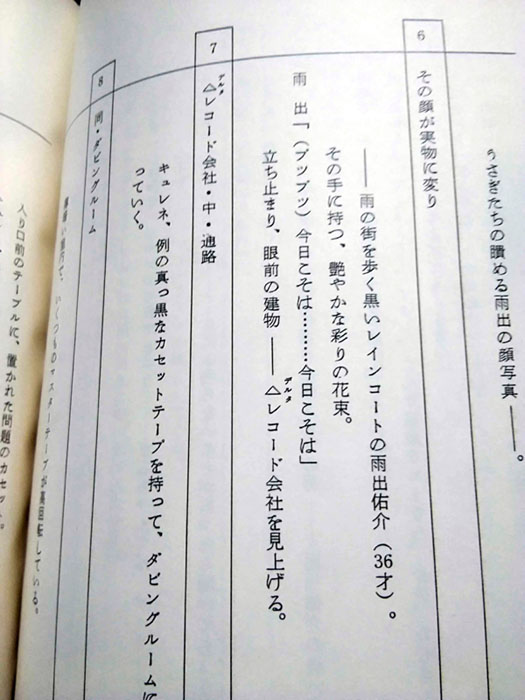 うさぎたちの瞶める雨出の顔写真――。
6 その顔が実物に変り
――雨の街を歩く黒いレインコートの雨出佑介（36才）。
その手に持つ、艶やかな彩りの花束。
雨 出「（ブツブツ）今日こそは………今日こそは」
立ち止まり、眼前の建物――△レコード会社を見上げる。
デルタ
7 △レコード会社・中・通路
デルタ
キュレネ、例の真っ黒なカセットテープを持って、ダビングルームに
っていく。
8 同・ダビングルーム
いくつものマスターテープが高回転している。
入り口前のテーブルに、置かれた問題のカセット。